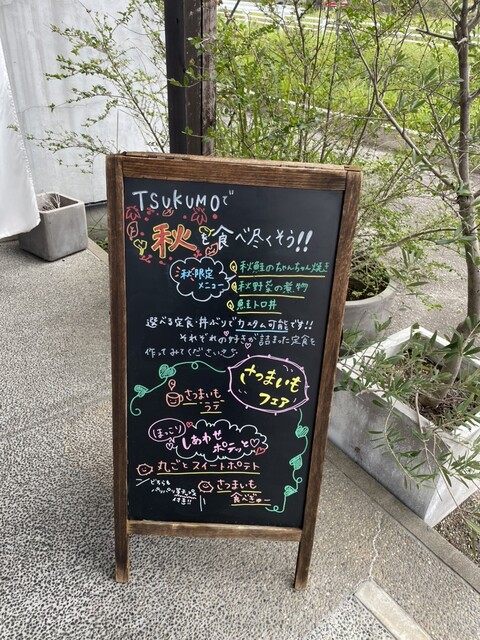 TSUKUMOで
秋を食べ尽くそう!!
秋限定
メニュー
秋鮭のちゃんちゃん焼き
秋野菜の煮物
鮭トロ丼
選べる定食・丼ぶりでカスタム可能です!!
それぞれの好きが詰まった定食を
作ってみてくださいさ
さつまいも
フェア
さつまいも
ラテ
ほっこり
しあわせ
ポテッと
丸ごとスイートポテト
どちらも
付き!!
さつまいも